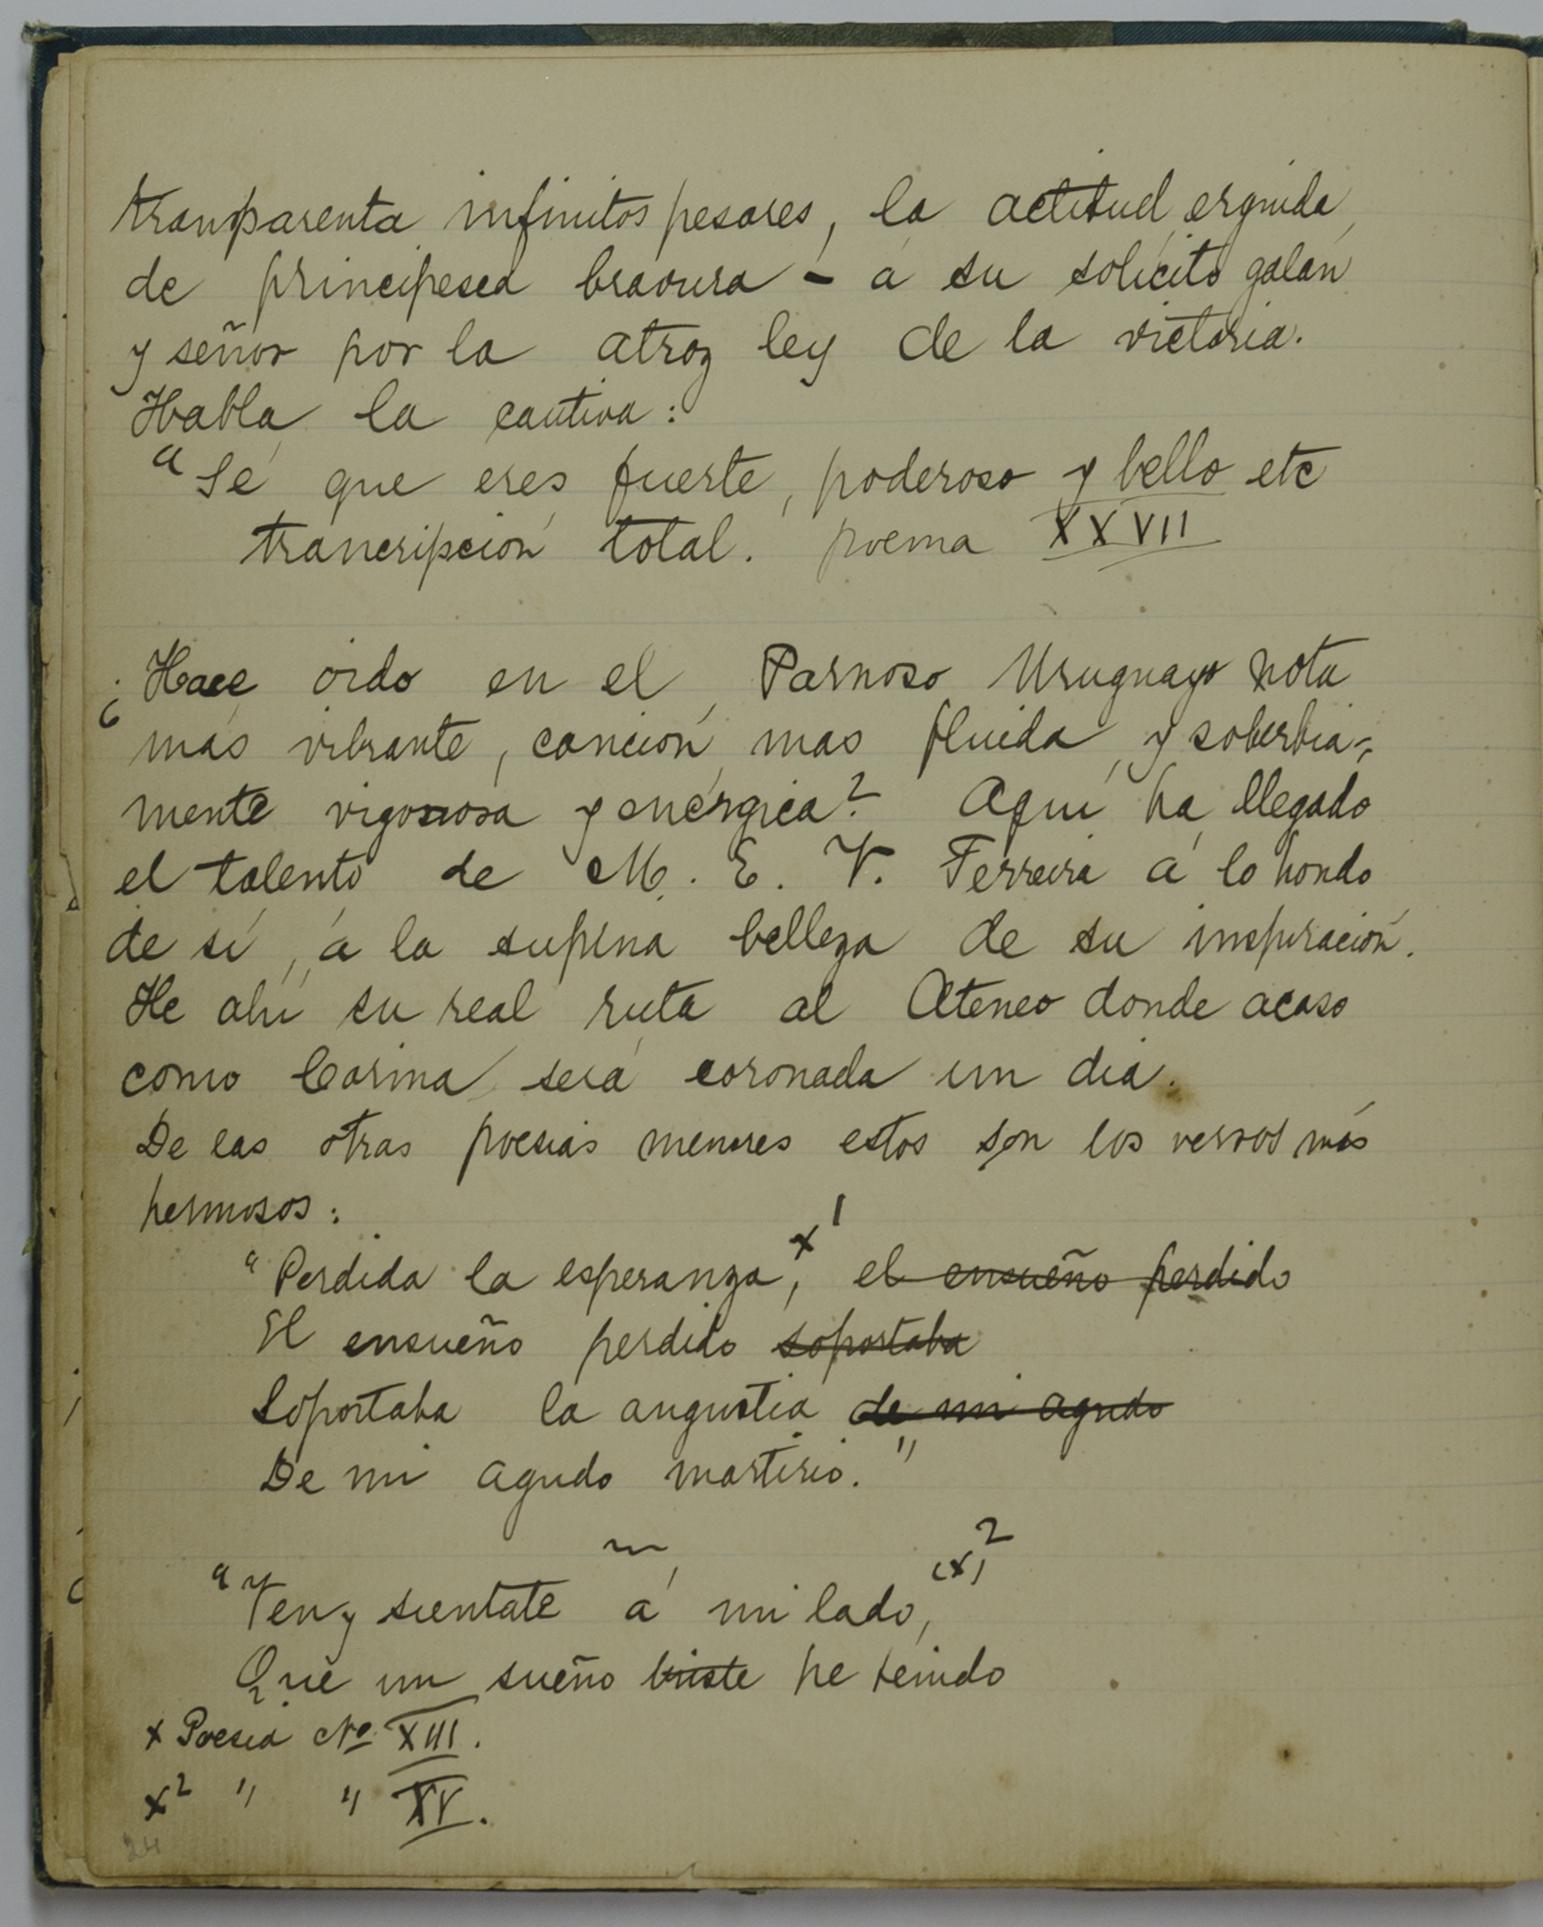 tranparenta infinitos pesares, la actitud erguida,
de principesca bravura - á su solícito galán
y señor por la atroz ley de la victoria.
Habla la cautiva:
"Sé que eres fuerte, poderoso y bello etc
trancripción total. poema XXVII
¿Hace oido en el Parnaso Uruguayo nota
más vibrante, canción mas fluida y soberbia-
mente vigorosa y enérgica? Aquí ha llegado
el talento de M. E. V. Ferreira á lo hondo
de sí, á la suprema belleza de su inspiración.
He ahí su real ruta al Ateneo donde acaso
como Corina será coronada un día.
De las otras poesías menores estos son los versos más
hermosos:
"Perdida la esperanza, x1 el ensueño perdido
El ensueño perdido soportaba
Soportaba la angustia de mi agudo
De mi agudo martirio."
"Ven y sientate á mi lado, (x)2
Que un sueño triste he tenido
x Poesía No XIII.
x2 " " XV.
24